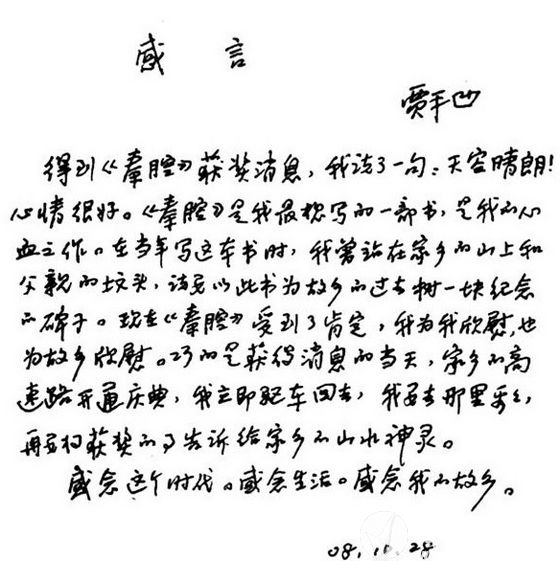 感言
贾平凹
得到《秦腔》获奖消息，我说了一句：天空晴朗！
心情很好。《秦腔》是我最想写的一部书，是我的心
血之作。在当年写这本书时，我曾站在家乡的山上和
父亲的坟头，说要以此书为故乡的过去树一块纪念
的碑子。现在《秦腔》受到了肯定，我为我欣慰，也
为故乡欣慰。巧的是获得消息的当天，家乡的高
速路开通庆典，我立即驱车回去，我要去那里
再要把获奖的事告诉给家乡的山水神灵。
感念这个时代。感念生活。感念我的故乡。
08.10.28